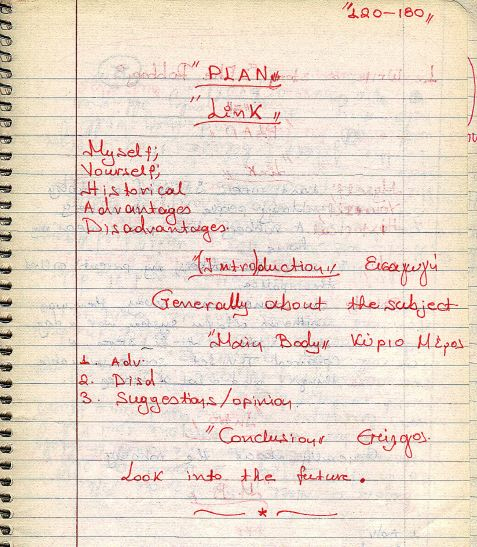 "120-180"
"PLAN"
"Link"
Myself;
Yourself;
Historical
Advantages
Disadvantages.
"(Introduction" Εισαγωγή
Generally about the subject
"Main Body" Κύριο Μέρος
1. Adv.
2. Disd
3. Suggestions/opinion.
"Conclusion" Επίλογος.
Look into the future.